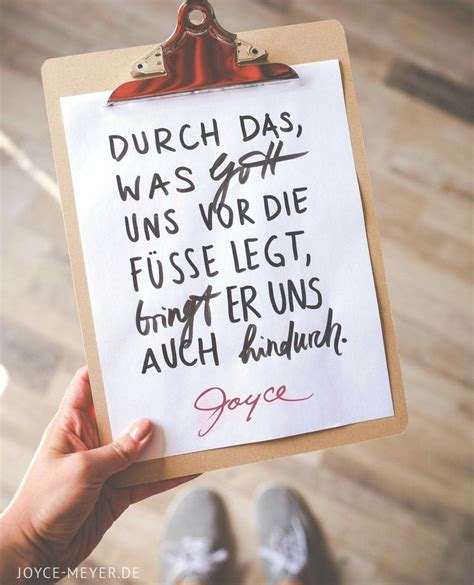 DURCH DAS,
WAS Gott
UNS VOR DIE
FÜSSE LEGT,
bringt ER UNS
AUCH hindurch.
Joyce
JOYCE-MEYER.DE